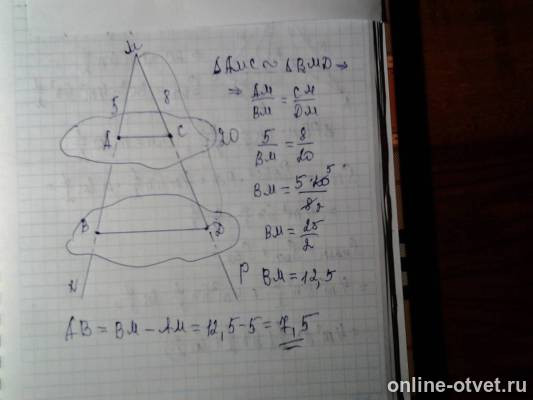 M
5
8
A
C
20
B
D
N
P
ΔAMC ~ ΔBMD ⇒
⇒ AM/BM = CM/DM
5/BM = 8/20
BM = 5·20⁵/8₂
BM = 25/2
BM = 12,5
AB = BM − AM = 12,5 − 5 = 7,5
online-otvet.ru